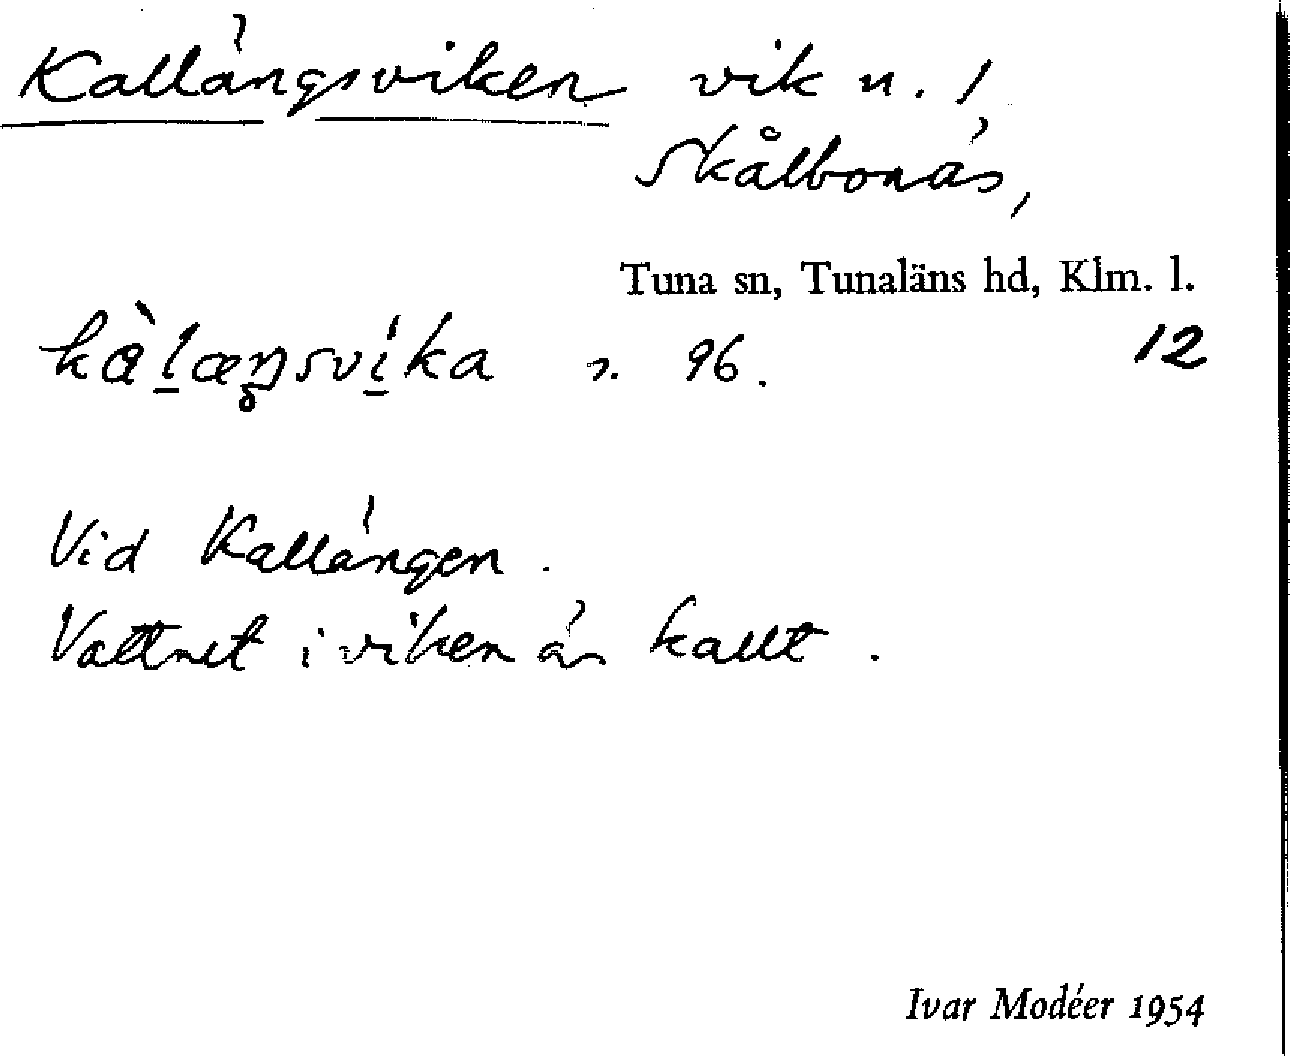 Kallängsviken vik n. /
Skålbonäs,
Tuna sn, Tunaläns hd, Klm. l.
12
s. 96.
Vid Kallängen.
Vattnet i viken är kallt.
Ivar Modéer 1954